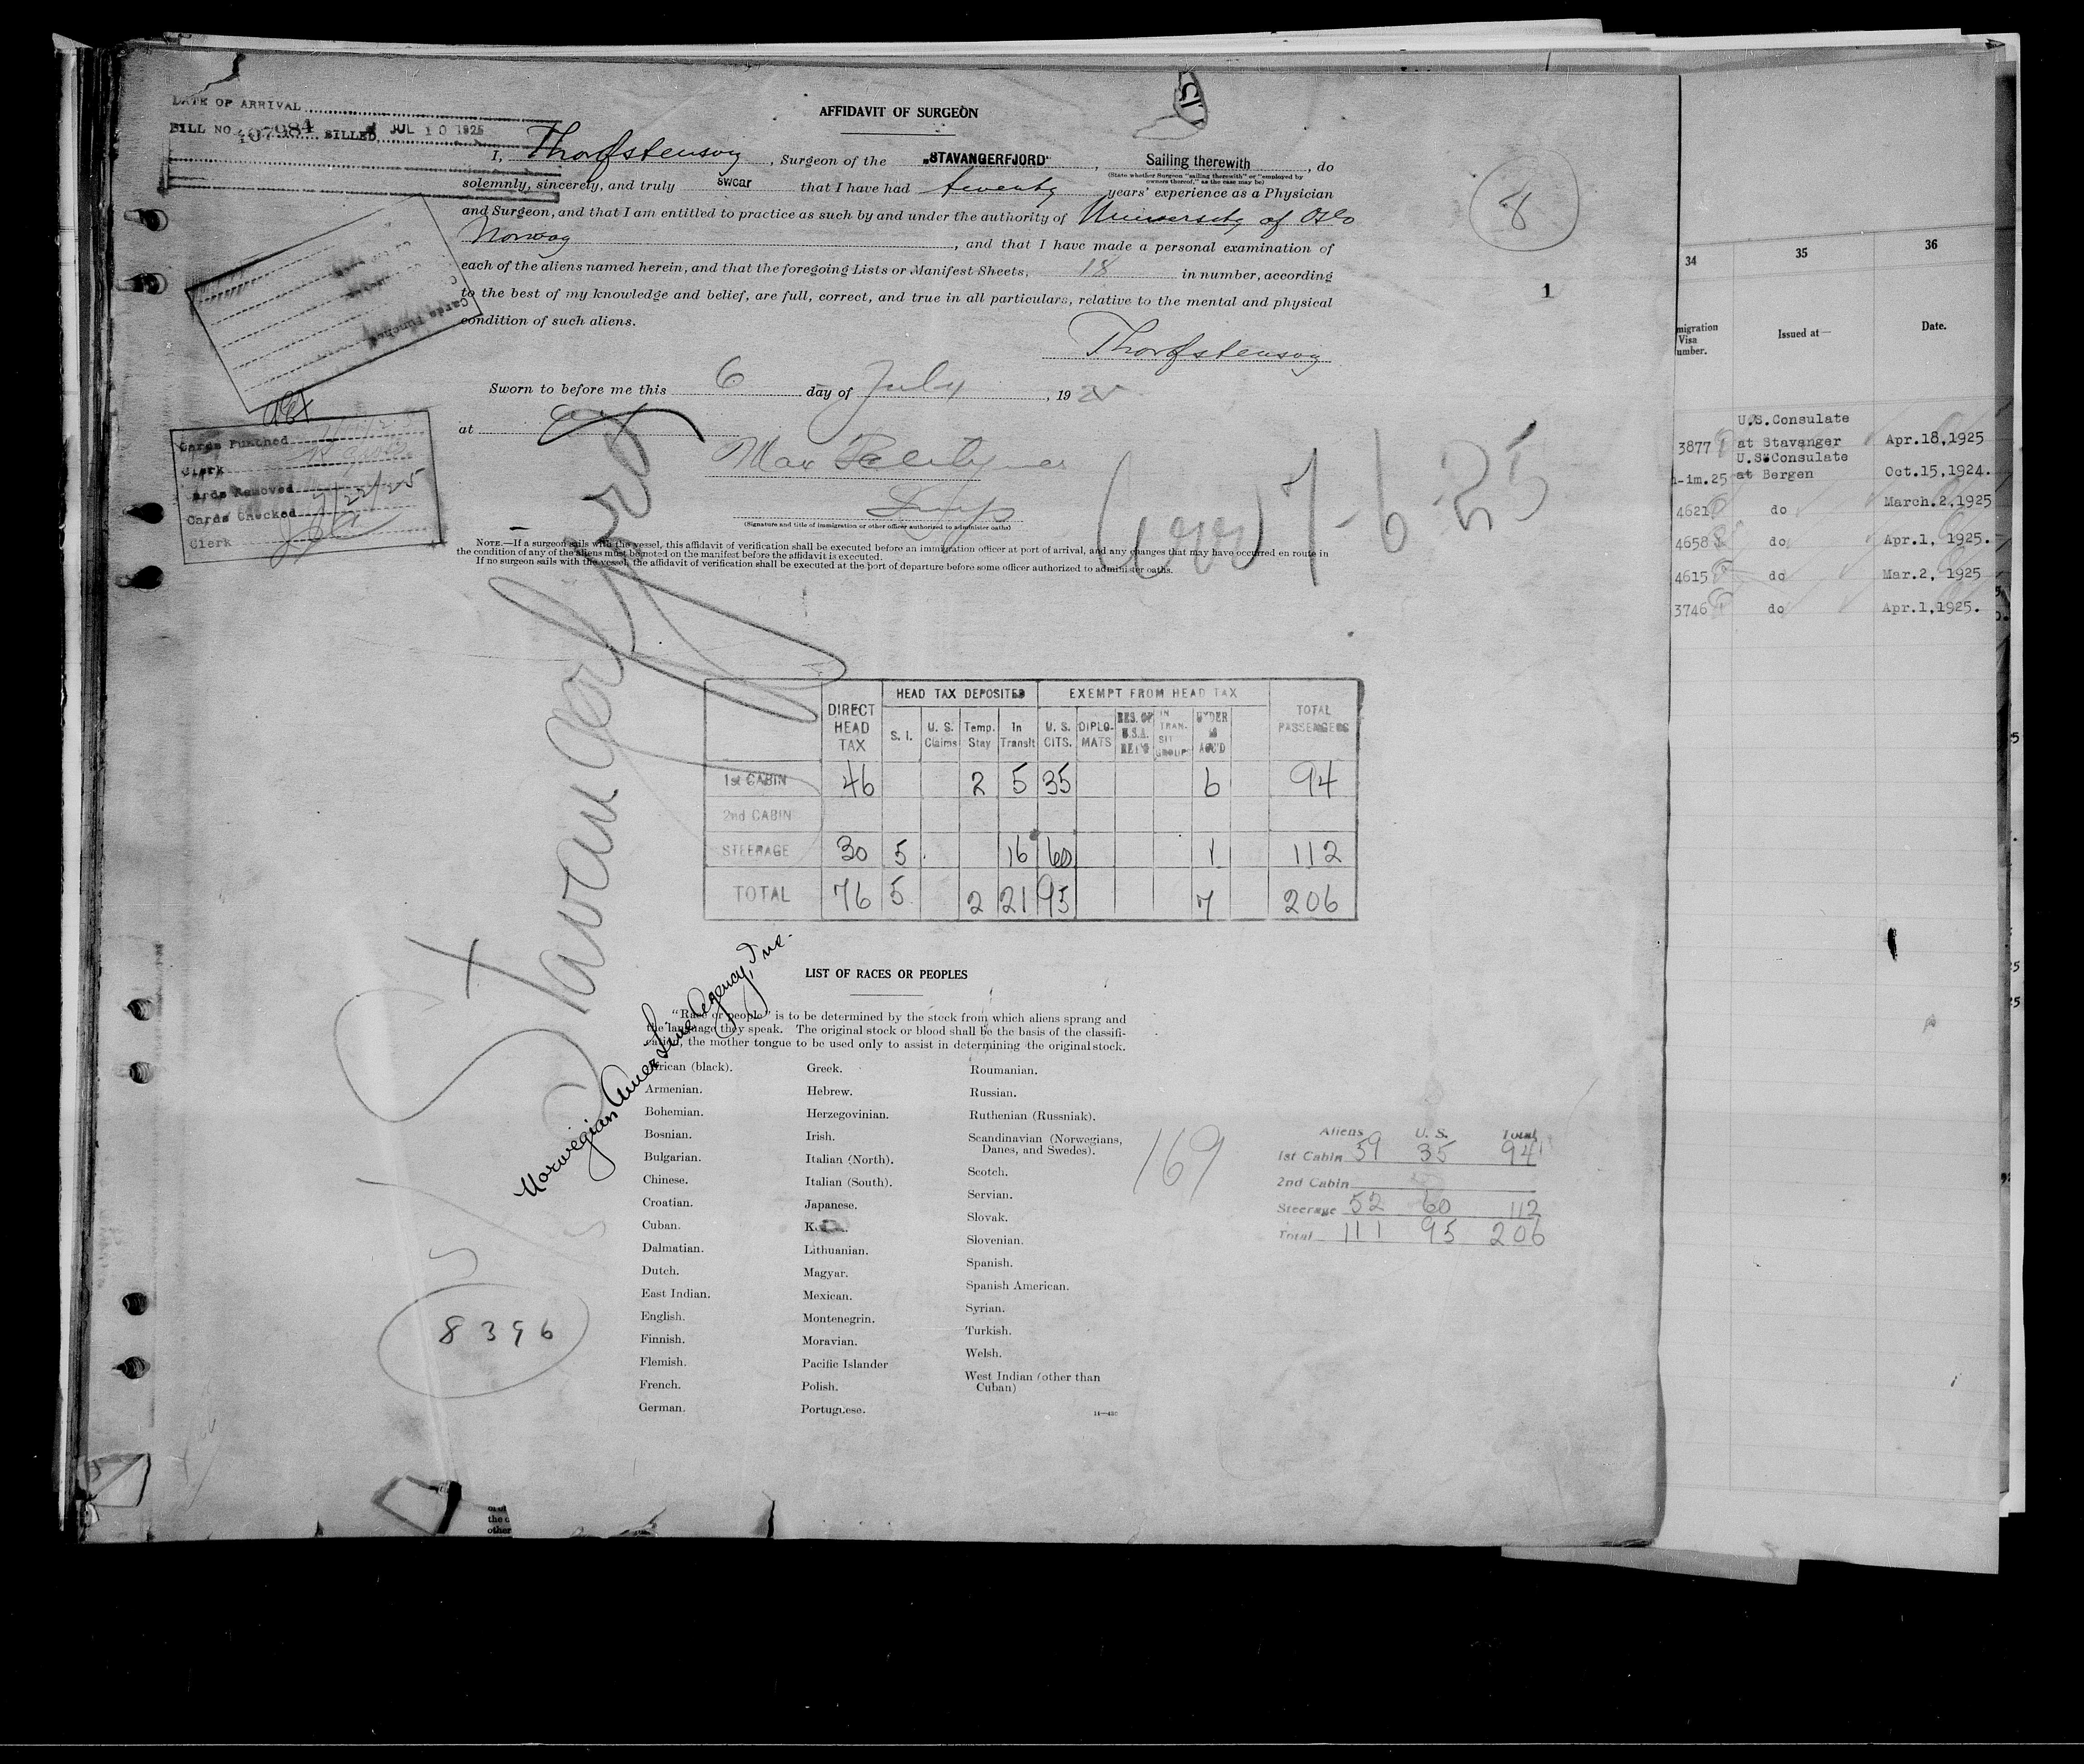 DATE OF ARRIVAL
BILL NO. 407984 BILLED JUL 10 1925
AFFIDAVIT OF SURGEON
I, , Surgeon of the "STAVANGERFJORD", Sailing therewith, do
(State whether Surgeon "sailing therewith" or "employed by
owners thereof," as the case may be)
solemnly, sincerely, and truly swear that I have had twenty years' experience as a Physician
and Surgeon, and that I am entitled to practice as such by and under the authority of University of Oslo
Norway, and that I have made a personal examination of
each of the aliens named herein, and that the foregoing Lists or Manifest Sheets, 18 in number, according
to the best of my knowledge and belief, are full, correct, and true in all particulars, relative to the mental and physical
condition of such aliens.
8
1
Cards Punched
Sworn to before me this 6 day of July, 1925
at
Max
Insp
(Signature and title of immigration or other officer authorized to administer oaths)
7-6-25
Cards Punched
Clerk
Cards Removed
Cards Checked 7/22/25
Clerk
NOTE.—If a surgeon sails with the vessel, this affidavit of verification shall be executed before an immigration officer at port of arrival, and any changes that may have occurred en route in
the condition of any of the aliens must be noted on the manifest before the affidavit is executed.
If no surgeon sails with the vessel, the affidavit of verification shall be executed at the port of departure before some officer authorized to administer oaths.
Stavangerfjord
HEAD TAX DEPOSITED EXEMPT FROM HEAD TAX
DIRECT HEAD TAX S. I. U. S. Claims Temp. Stay In Transit U. S. CITS. DIPLO-MATS RES. OF U.S.A. RET'G IN TRAN-SIT GROUPS UNDER 16 ACC'D TOTAL PASSENGERS
1st CABIN 46 2 5 35 6 94
2nd CABIN
STEERAGE 30 5 16 60 1 112
TOTAL 76 5 2 21 95 7 206
Norwegian Amer Line Agency, Inc.
LIST OF RACES OR PEOPLES
"Race or people" is to be determined by the stock from which aliens sprang and
the language they speak. The original stock or blood shall be the basis of the classifi-
cation, the mother tongue to be used only to assist in determining the original stock.
African (black).
Armenian.
Bohemian.
Bosnian.
Bulgarian.
Chinese.
Croatian.
Cuban.
Dalmatian.
Dutch.
East Indian.
English.
Finnish.
Flemish.
French.
German.
Greek.
Hebrew.
Herzegovinian.
Irish.
Italian (North).
Italian (South).
Japanese.
Lithuanian.
Magyar.
Mexican.
Montenegrin.
Moravian.
Pacific Islander
Polish.
Portuguese.
Roumanian.
Russian.
Ruthenian (Russniak).
Scandinavian (Norwegians,
Danes, and Swedes).
Scotch.
Servian.
Slovak.
Slovenian.
Spanish.
Spanish American.
Syrian.
Turkish.
Welsh.
West Indian (other than
Cuban)
169
Aliens U. S. Total
1st Cabin 59 35 94
2nd Cabin
Steerage 52 60 112
Total 111 95 206
8396
the c
other
34 35 36
migration
Visa
umber.
Issued at—
Date.
U.S.Consulate
3877 at Stavanger Apr.18,1925
U.S.Consulate
-im.25 at Bergen Oct.15,1924.
4621 do March.2,1925
4658 do Apr.1, 1925.
4615 do Mar.2, 1925
3746 do Apr.1,1925.